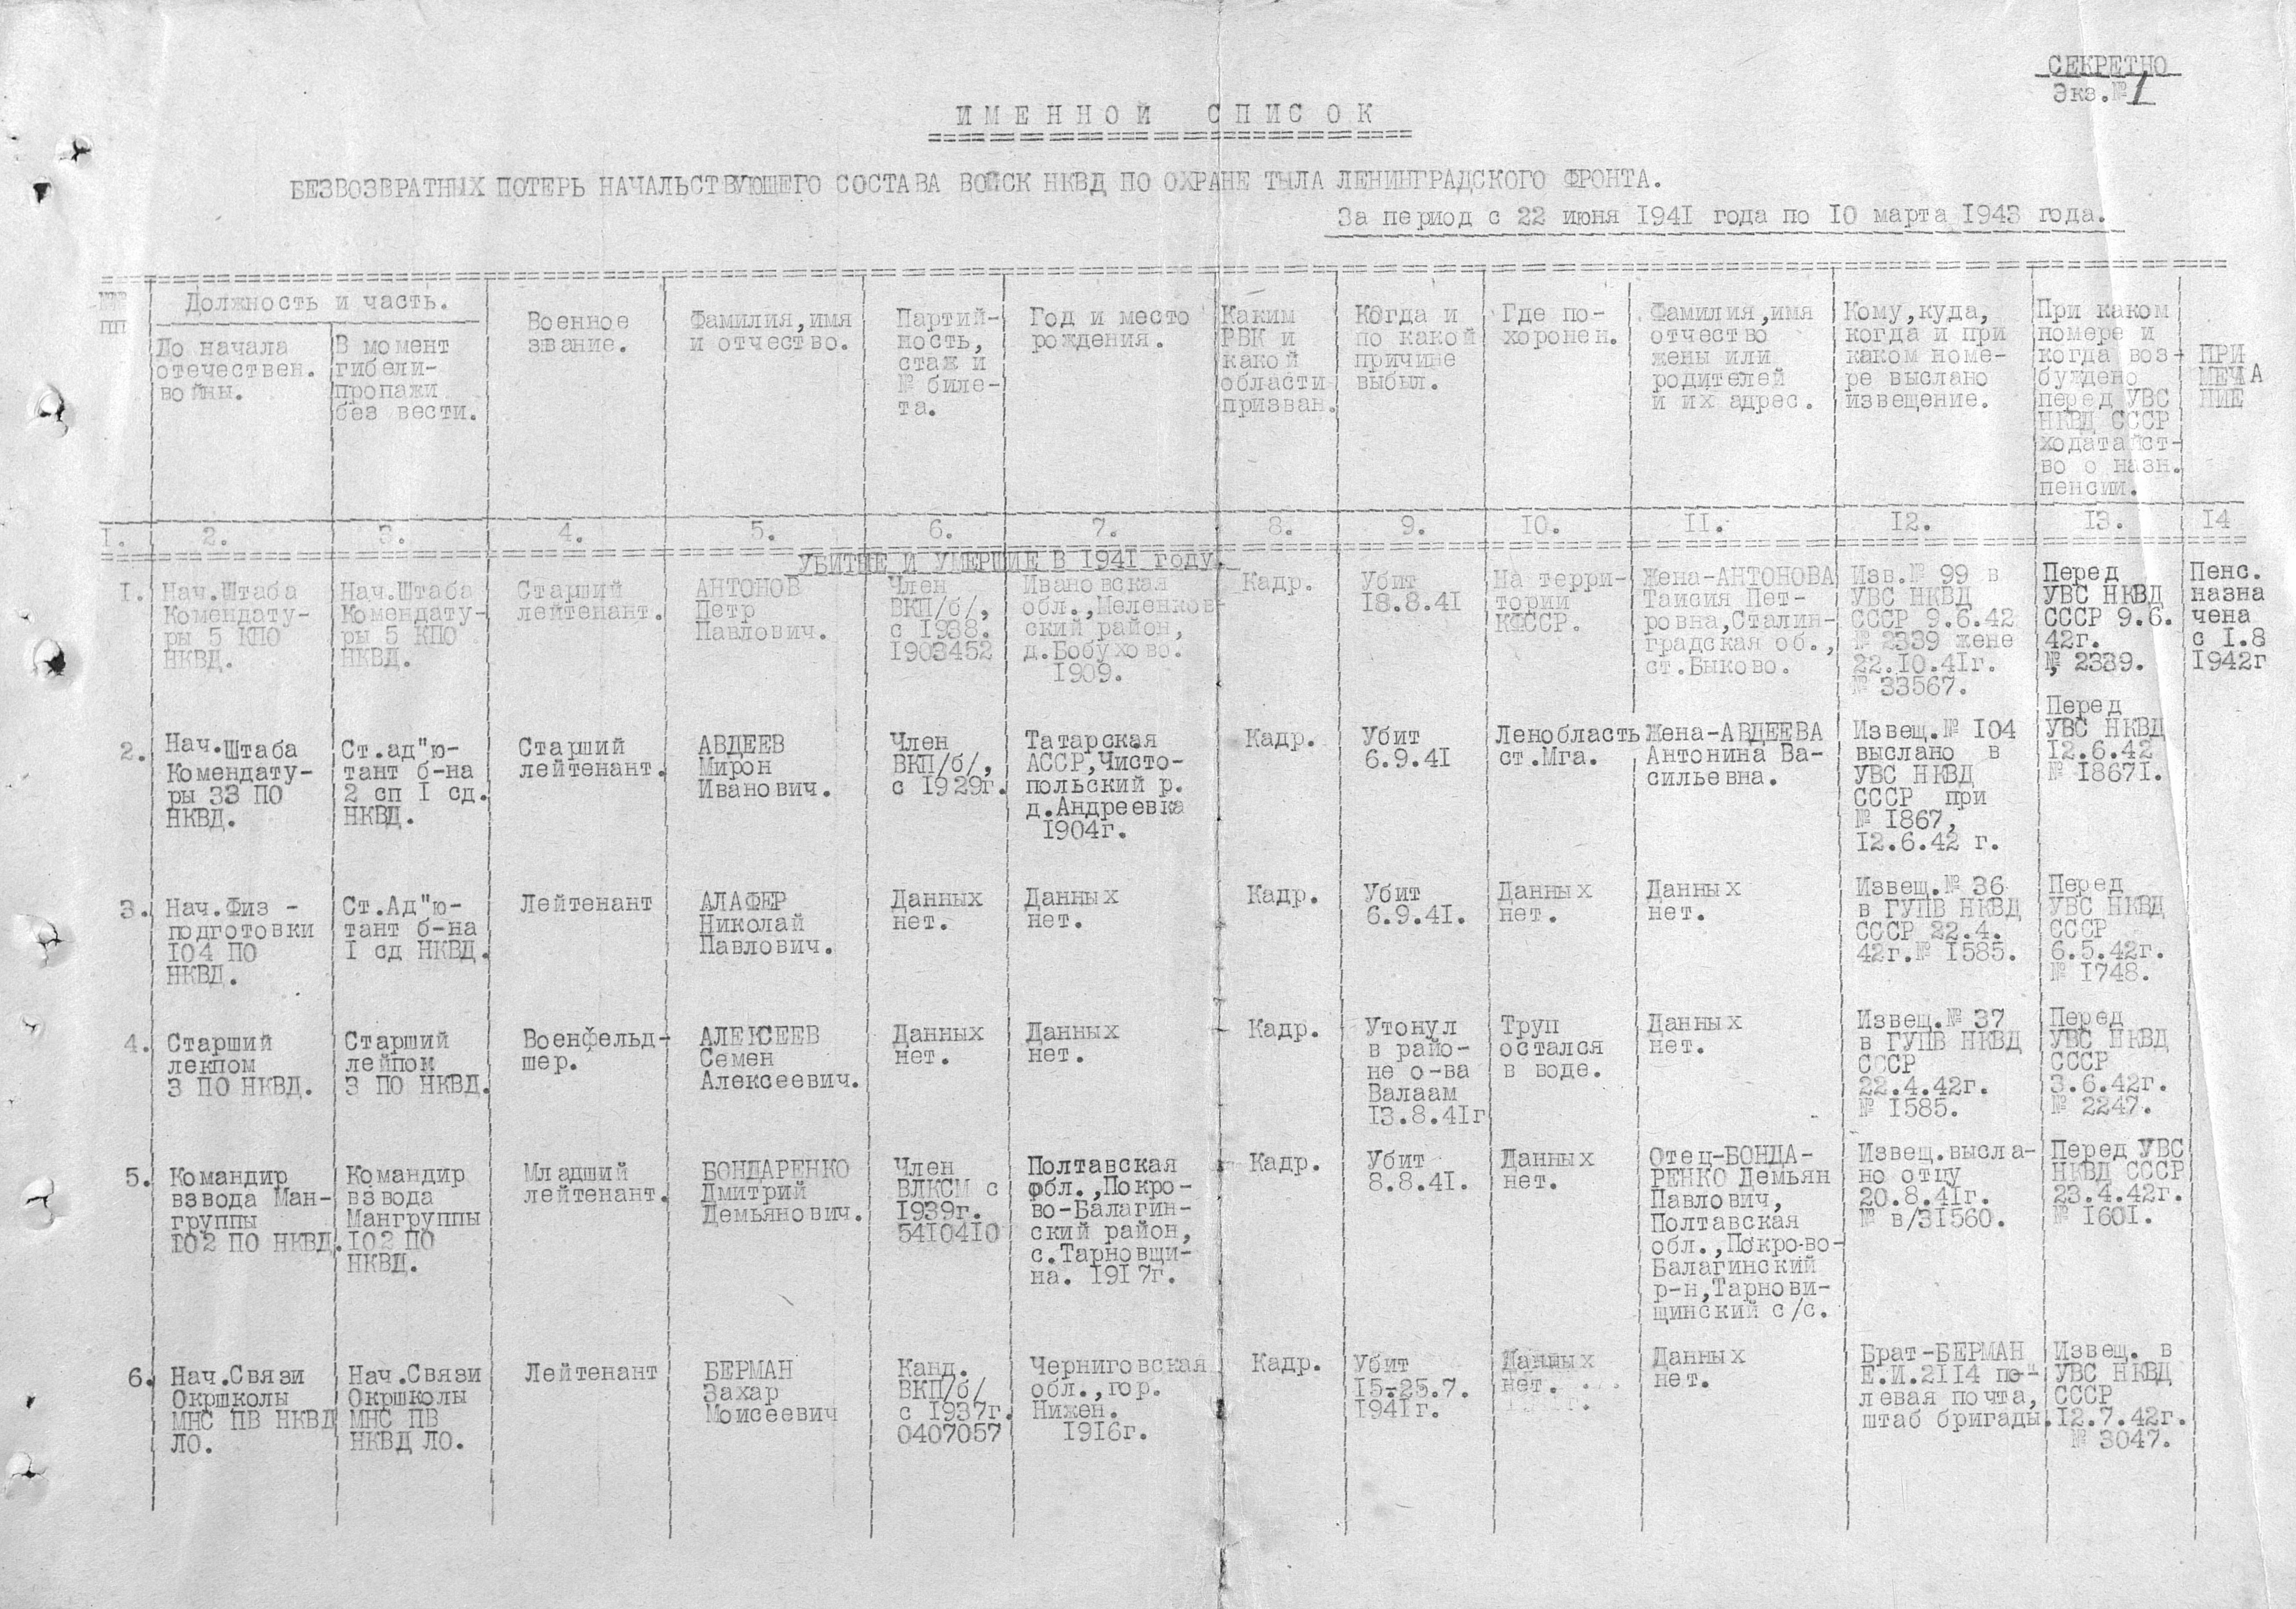 СЕКРЕТНО
Экз.№ 1
ИМЕННОЙ СПИСОК
БЕЗВОЗВРАТНЫХ ПОТЕРЬ НАЧАЛЬСТВУЮЩЕГО СОСТАВА ВОЙСК НКВД ПО ОХРАНЕ ТЫЛА ЛЕНИНГРАДСКОГО ФРОНТА.
За период с 22 июня 1941 года по 10 марта 1943 года.
№№
пп
Должность и часть.
До начала
отечествен.
войны.
В момент
гибели-
пропажи
без вести.
Военное
звание.
Фамилия,имя
и отчество.
Партий-
ность,
стаж и
№ биле-
та.
Год и место
рождения.
Каким
РВК и
какой
области
призван.
Когда и
по какой
причине
выбыл.
Где по-
хоронен.
Фамилия,имя
отчество
жены или
родителей
и их адрес.
Кому,куда,
когда и при
каком номе-
ре выслано
извещение.
При каком
номере и
когда воз-
буждено
перед УВС
НКВД СССР
ходатайст-
во о назн.
пенсии.
ПРИ
МЕЧА
НИЕ
I. 2. 3. 4. 5. 6. 7. 8. 9. IO. II. I2. I3. I4
УБИТЫЕ И УМЕРШИЕ В I94I году.
I.
Нач.Штаба
Комендату-
ры 5 КПО
НКВД.
Нач.Штаба
Комендату-
ры 5 КПО
НКВД.
Старший
лейтенант.
АНТОНОВ
Петр
Павлович.
Член
ВКП/б/,
с I938.
I903452
Ивановская
обл.,Меленков-
ский район,
д.Бобухово.
I909.
Кадр.
Убит
I8.8.4I
На терри-
тории
КФССР.
Жена-АНТОНОВА
Таисия Пет-
ровна,Сталин-
градская об.,
ст.Быково.
Изв.№ 99 в
УВС НКВД
СССР 9.6.42
№ 2339 жене
22.I0.4Iг.
№ 33567.
Перед
УВС НКВД
СССР 9.6.
42г.
№ 2339.
Пенс.
назна
чена
с I.8
I942г
2.
Нач.Штаба
Комендату-
ры 33 ПО
НКВД.
Ст.ад"ю-
тант б-на
2 сп I сд.
НКВД.
Старший
лейтенант.
АВДЕЕВ
Мирон
Иванович.
Член
ВКП/б/,
с I929г.
Татарская
АССР,Чисто-
польский р.
д.Андреевка
I904г.
Кадр.
Убит
6.9.4I
Ленобласть
ст.Мга.
Жена-АВДЕЕВА
Антонина Ва-
сильевна.
Извещ.№ I04
выслано в
УВС НКВД
СССР при
№ I867,
I2.6.42 г.
Перед
УВС НКВД
I2.6.42
№ I867I.
3.
Нач.Физ -
подготовки
I04 ПО
НКВД.
Ст.Ад"ю-
тант б-на
I сд НКВД.
Лейтенант
АЛАФЕР
Николай
Павлович.
Данных
нет.
Данных
нет.
Кадр.
Убит
6.9.4I.
Данных
нет.
Данных
нет.
Извещ.№ 36
в ГУПВ НКВД
СССР 22.4.
42г.№ I585.
Перед
УВС НКВД
СССР
6.5.42г.
№ I748.
4.
Старший
лекпом
3 ПО НКВД.
Старший
лейпом
3 ПО НКВД.
Военфельд-
шер.
АЛЕКСЕЕВ
Семен
Алексеевич.
Данных
нет.
Данных
нет.
Кадр.
Утонул
в райо-
не о-ва
Валаам
I3.8.4Iг
Труп
остался
в воде.
Данных
нет.
Извещ.№ 37
в ГУПВ НКВД
СССР
22.4.42г.
№ I585.
Перед
УВС НКВД
СССР
3.6.42г.
№ 2247.
5.
Командир
взвода Ман-
группы
I02 ПО НКВД.
Командир
взвода
Мангруппы
I02 ПО
НКВД.
Младший
лейтенант.
БОНДАРЕНКО
Дмитрий
Демьянович.
Член
ВЛКСМ с
I939г.
54I04I0
Полтавская
обл.,Покро-
во-Балагин-
ский район,
с.Тарновщи-
на. I9I7г.
Кадр.
Убит
8.8.4I.
Данных
нет.
Отец-БОНДА-
РЕНКО Демьян
Павлович,
Полтавская
обл.,Покрово-
Балагинский
р-н,Тарнови-
щинский с/с.
Извещ.высла-
но отцу
20.8.4Iг.
№ в/3I560.
Перед УВС
НКВД СССР
23.4.42г.
№ I60I.
6.
Нач.Связи
Окршколы
МНС ПВ НКВД
ЛО.
Нач.Связи
Окршколы
МНС ПВ
НКВД ЛО.
Лейтенант
БЕРМАН
Захар
Моисеевич
Канд.
ВКП/б/
с I937г.
0407057
Черниговская
обл.,гор.
Нижен.
I9I6г.
Кадр.
Убит
I5-25.7.
I94Iг.
Данных
нет.
Данных
нет.
Брат-БЕРМАН
Е.И.2II4 по-
левая почта,
штаб бригады.
Извещ. в
УВС НКВД
СССР
I2.7.42г.
№ 3047.